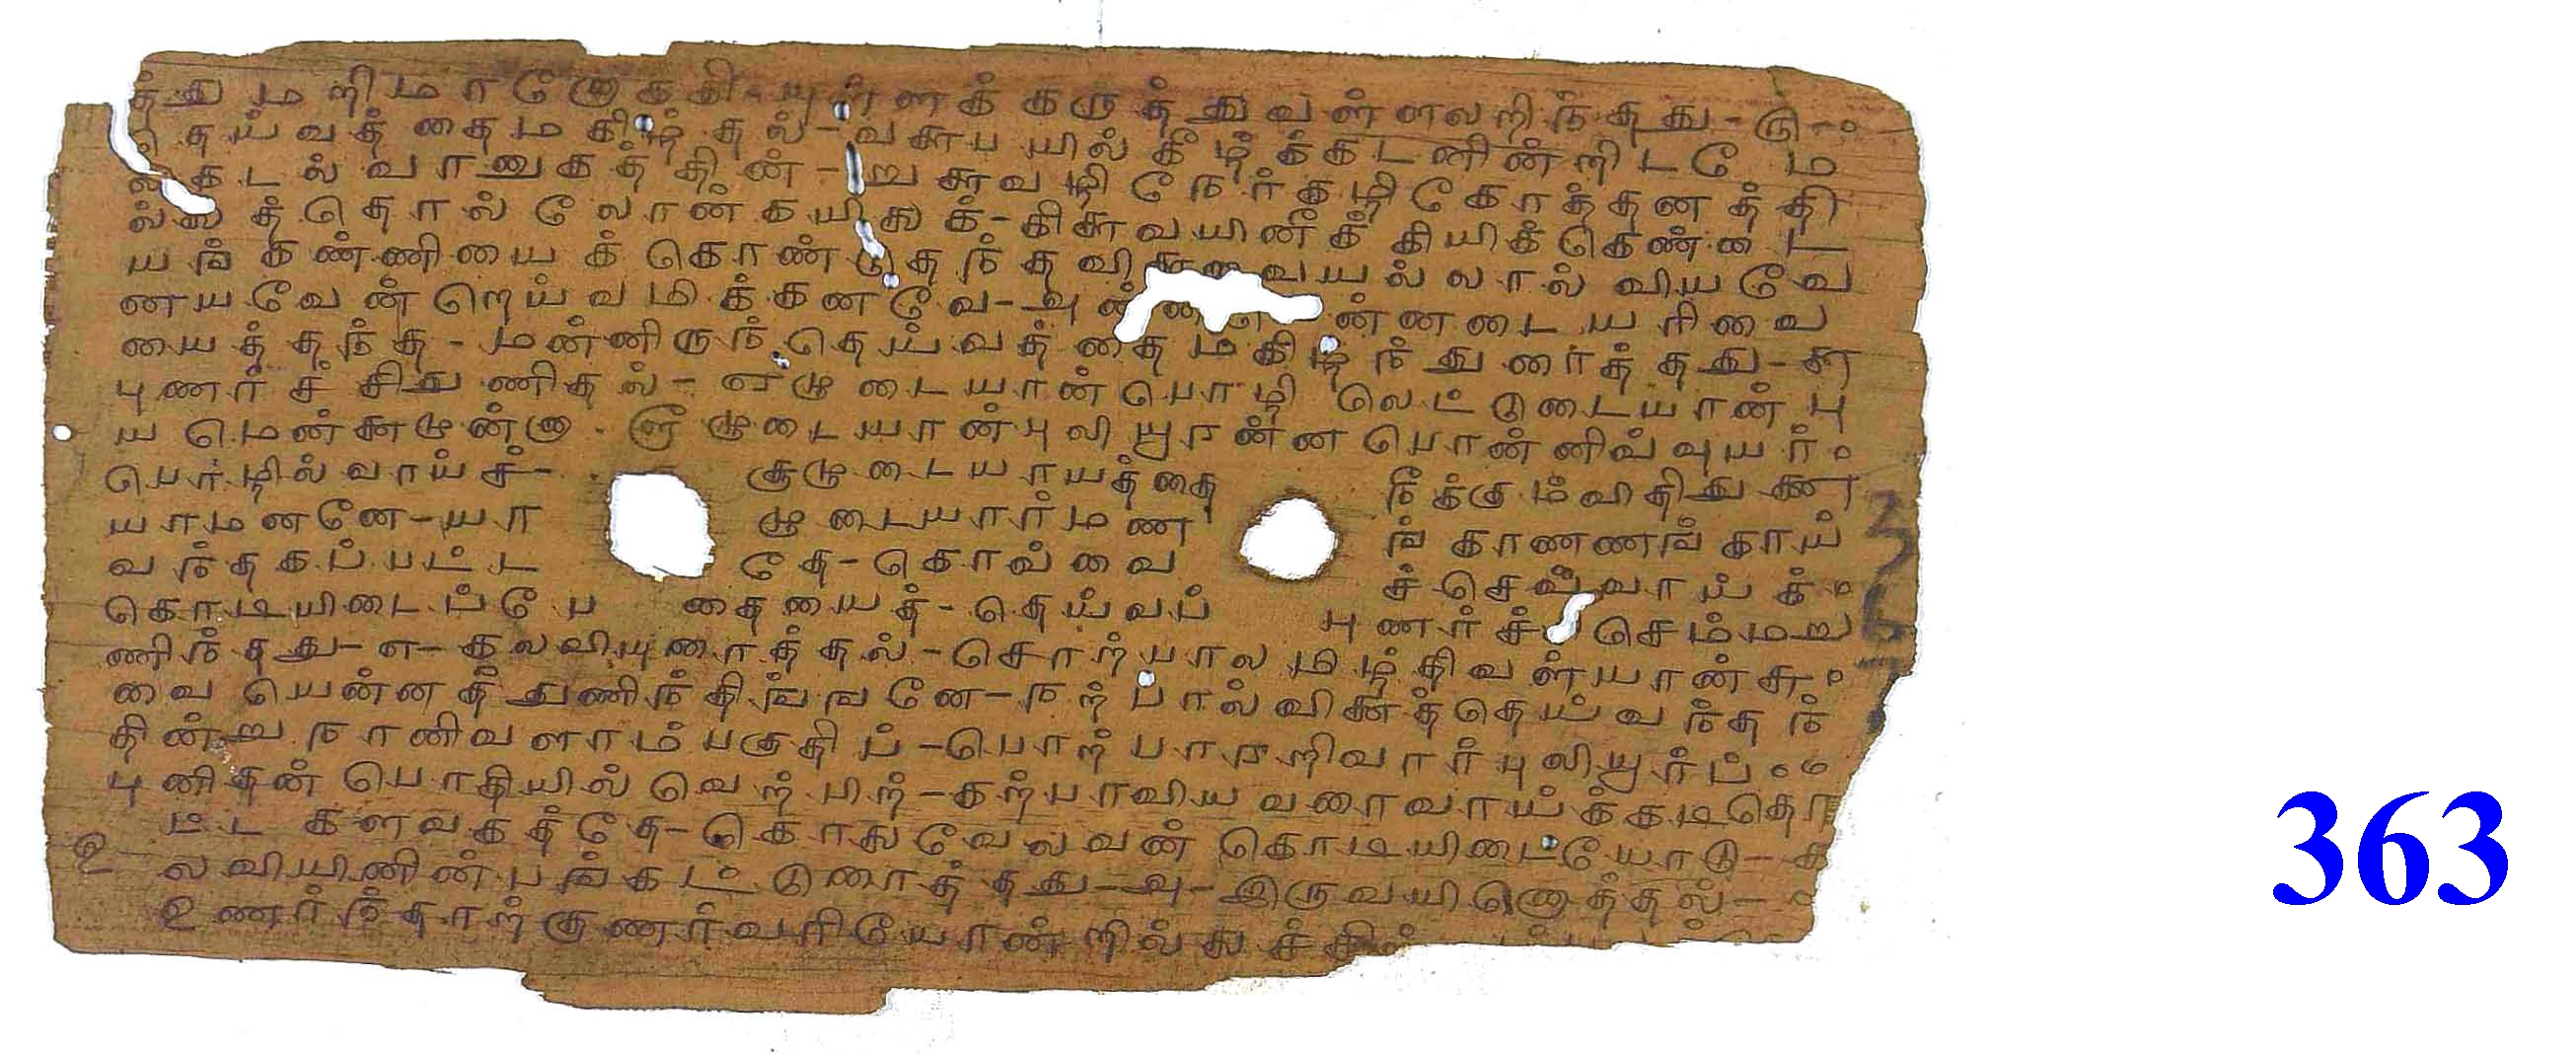 த்து மறிமானோக்கி-யுள்ளக் கருத்து வள்ளலறிந்தது-ரு-
தெய்வத்தை மகிழ்தல்-வளைபயில் கீழ்க்கடனின்றிட மே
ல்கடல் வானுகத்தின்-றுளைவழி நேர்கழி கோத்தனத்தி
ல்லைத் தொல்லோன் கயிலைக்-கிளைவயினீக்கியிக்கெண்டை
யங்கண்ணியைக் கொண்டுதந்த விளைவையல்லால் வியவே
னயவேன் றெய்வமிக்கனவே-அன்ன ன்னடையரிவை
யைத்தந்த-மன்னிருந் தெய்வத்தை மகிழ்ந்துரைத்தது-சு
புணர்ச்சி துணிதல்-ஏழுடையான் பொழிலெட்டுடையான் பு
யமென்னைமுன்னு ளூழுடையான் புலியூரன்ன பொன்னிவ்வுயர்
பொழில்வாய்ச்- சூழுடையாயத்தை நீக்கும் விதிதுணை
யாமனனே-யா ழுடையார்மண ங்காணணங்காய்
வந்தகப்பட்ட தே-கொவ்வை ச்செவ்வாய்க்
கொடியிடைப்பே தையைத்-தெய்வப் புணர்ச்சி செம்மறு
ணிந்தது-எ-கலவியுரைத்தல்-சொற்பாலமிழ்திவள் யான் சு
வை யென்னத் துணிந்திங்ஙனே-நற்பால் வினைத்தெய்வந்தந்
தின்று நானிவளாம் பகுதிப்-பொற்பாரறிவார் புலியூர்ப்
புனிதன் பொதியில் வெற்பிற்-கற்பாவிய வரைவாய்க்கடிதொ
ட்ட களவகத்தே-கொலைவேலவன் கொடியிடையோடு-க
உ லவியினின்பங்கட்டுரைத்தது-அ-இருவயினொத்தல்-
உணர்ந்தாற்குணர்வரியோன் றில்லைச்சிற்
363